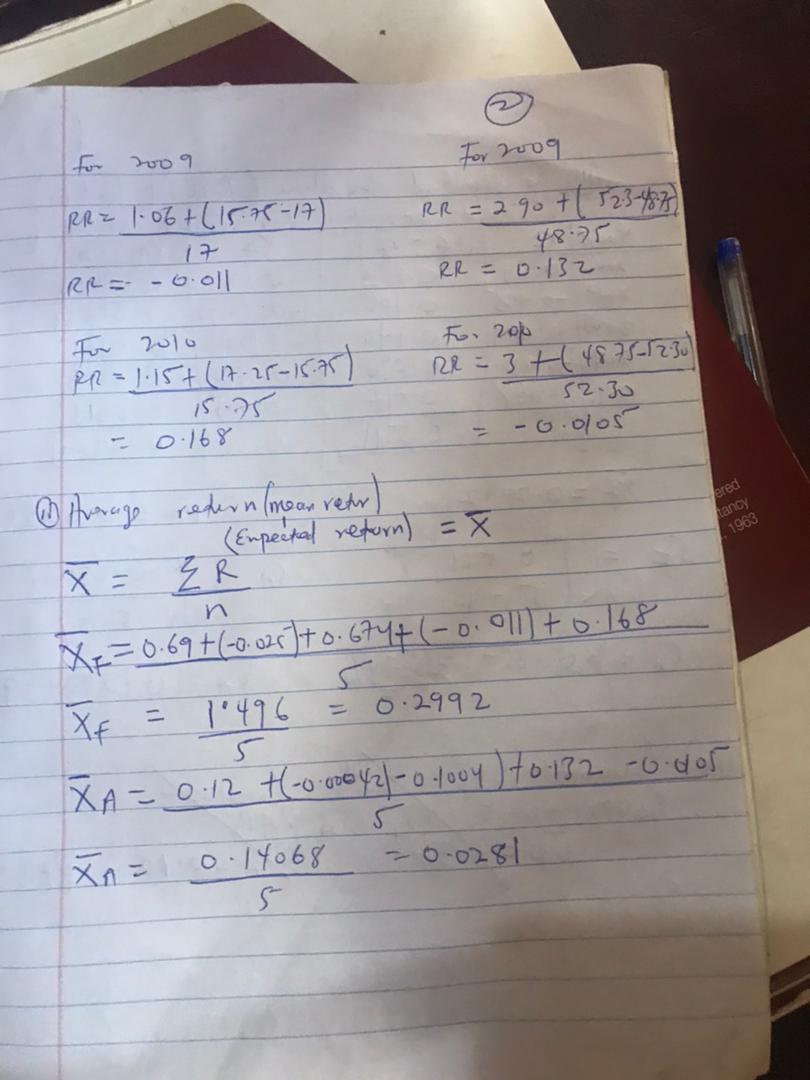 ②
For 2009
RR = 1.06 + (15.75-17)
17
RR = - 0.011
For 2009
RR = 2.90 + (52.3-48.75)
48.75
RR = 0.132
For 2010
RR = 1.15 + (17.25-15.75)
15.75
= 0.168
For 2010
RR = 3 + (48.75-52.30)
52.30
= -0.0105
(ii) Average return (mean retur)
(Expected return) = X̄
X̄ = Σ R
n
X̄F = 0.69 + (-0.025) + 0.674 + (-0.011) + 0.168
5
X̄F = 1.496 = 0.2992
5
X̄A = 0.12 + (-0.00042) - 0.1004) + 0.132 - 0.0105
5
X̄A = 0.14068 = 0.0281
5
ered
tancy
1963